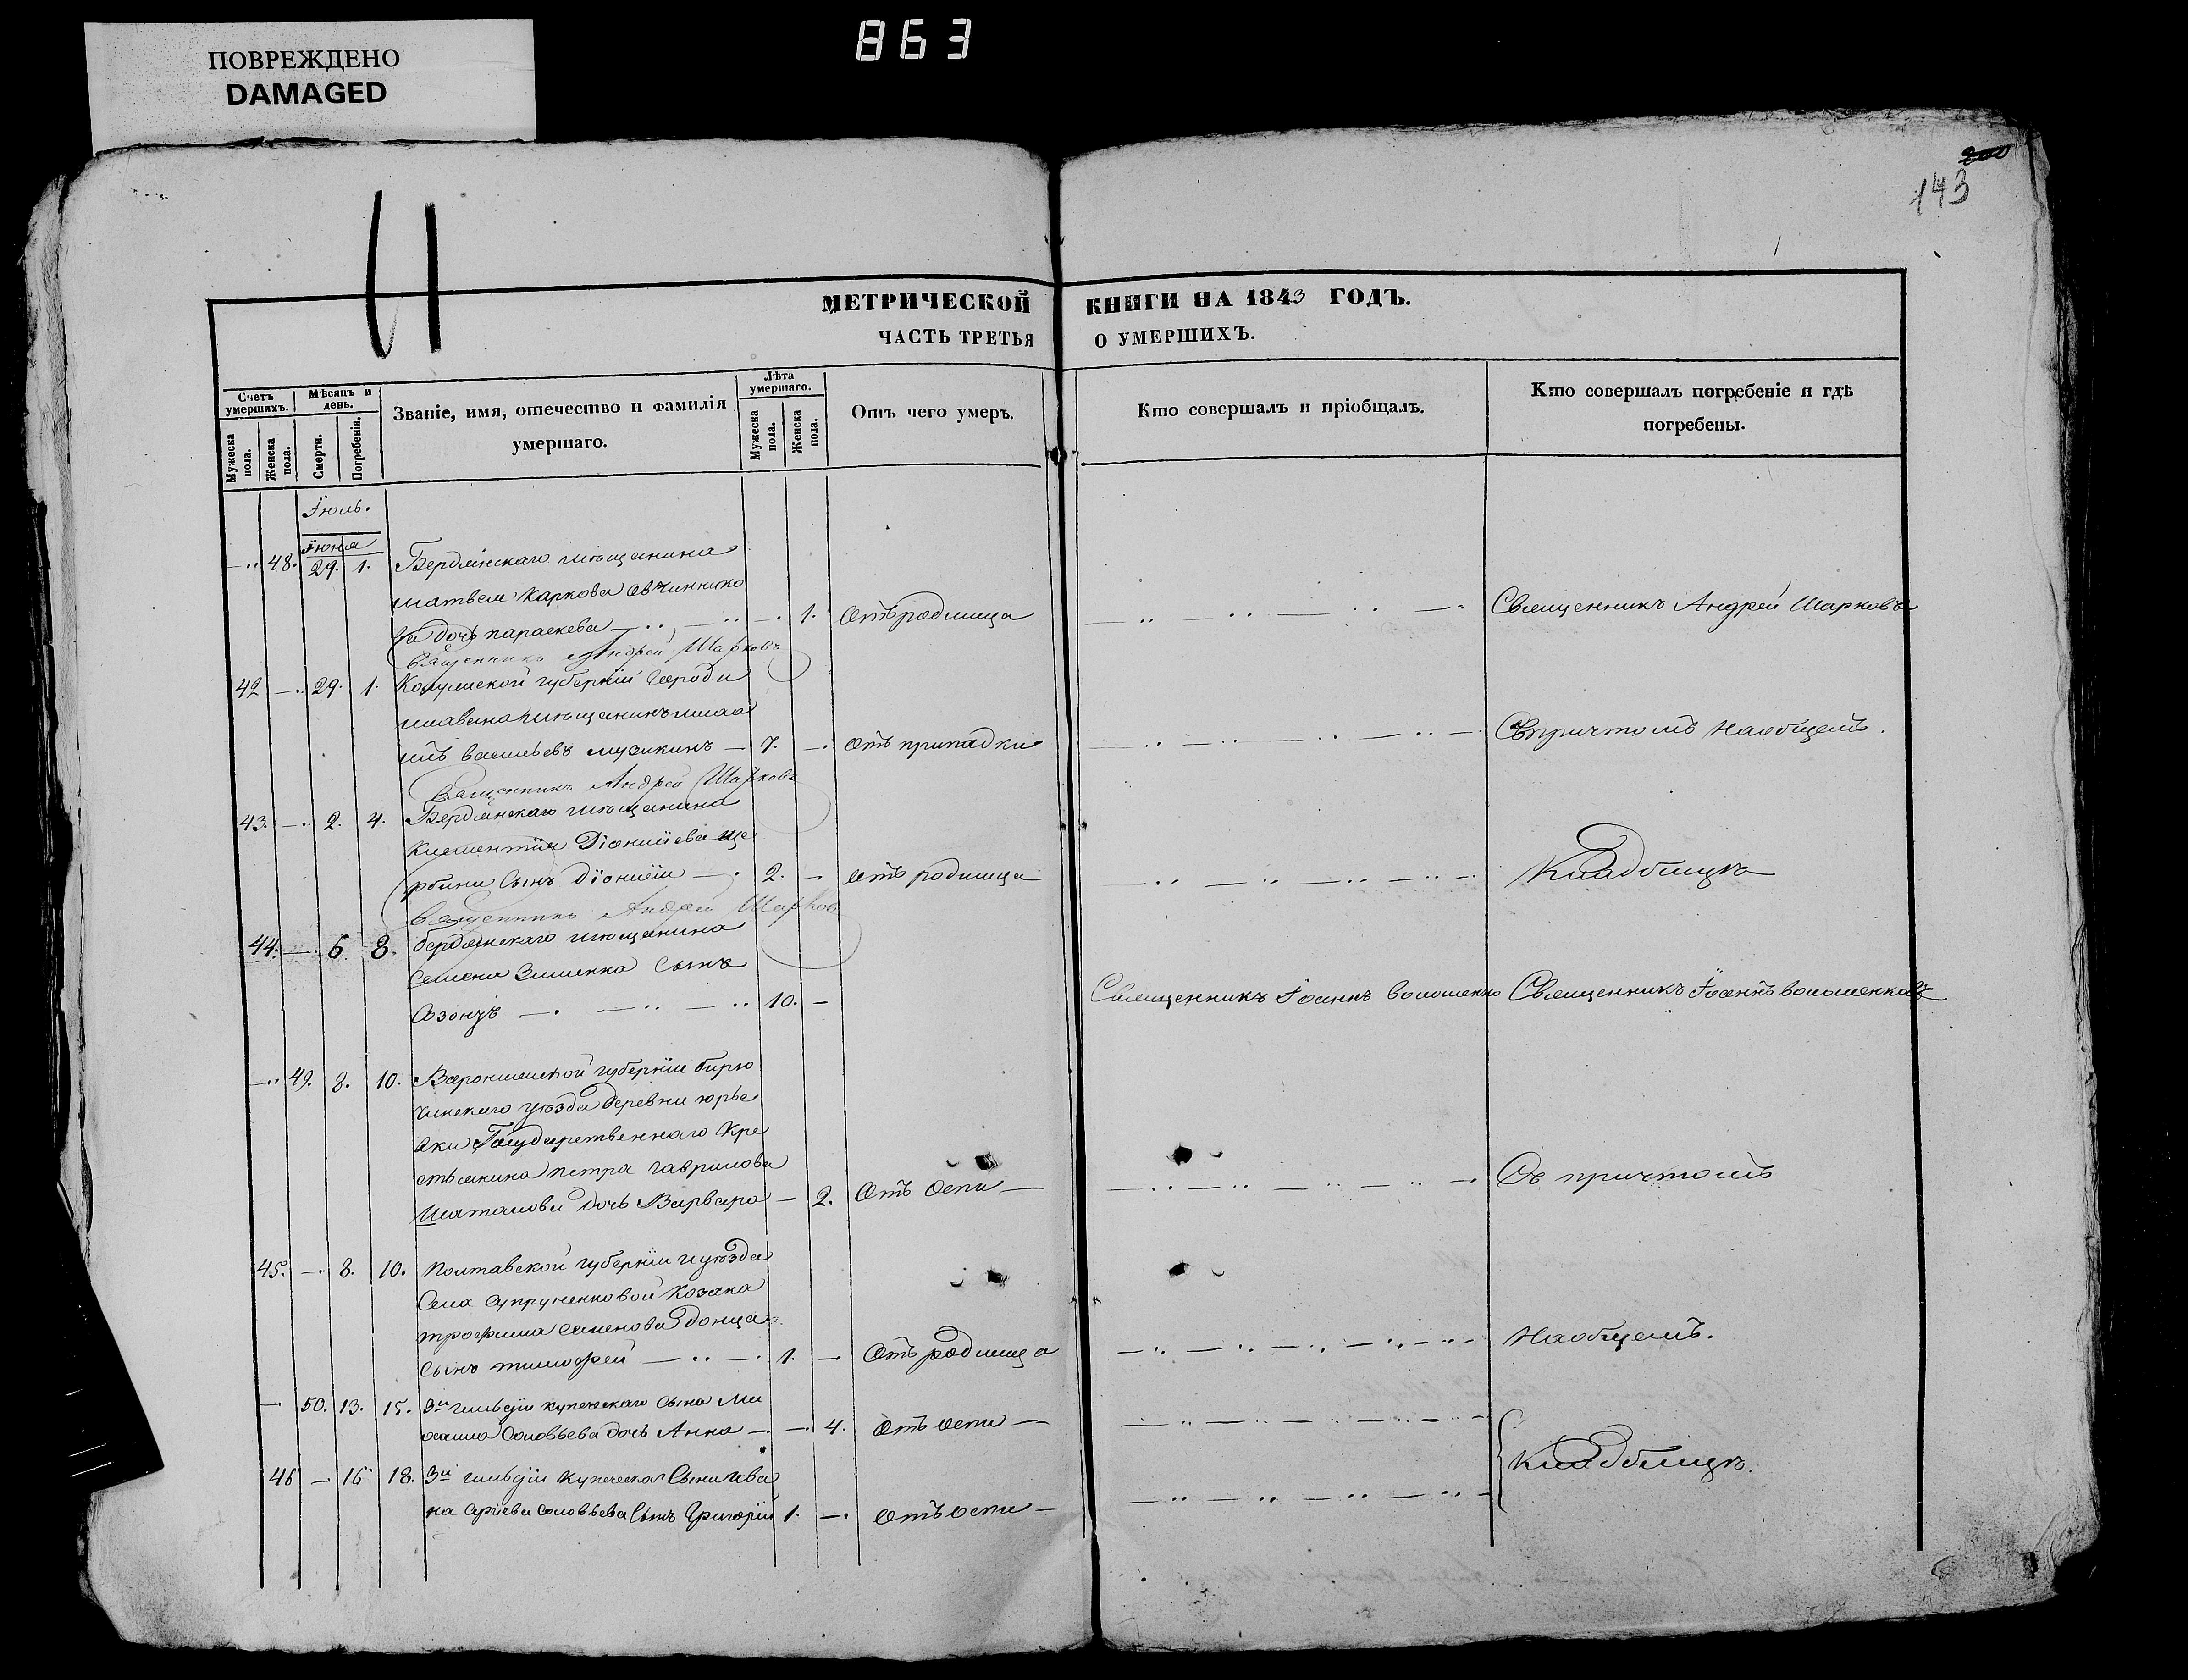 ПОВРЕЖДЕНО
DAMAGED
863
200
143
МЕТРИЧЕСКОЙ КНИГИ НА 1843 ГОДЪ.
ЧАСТЬ ТРЕТЬЯ О УМЕРШИХЪ.
Счетъ умершихъ.
Мужеска пола.
Женска пола.
Мѣсяцъ и день.
Смерти.
Погребенія.
Званіе, имя, отечество и фамилія
умершаго.
Лѣта умершаго.
Мужеска пола.
Женска пола.
Отъ чего умеръ.
Кто совершалъ и пріобщалъ.
Кто совершалъ погребеніе и гдѣ
погребены.
Іюль.
Іюня
48. 29. 1. Бердянскаго мѣщанина
матвея Каркова Овчиннико
ва дочь параскева 1. Отъ родимца Священникъ Андрей Шарковъ
Священникъ Андрей Шарковъ
42 29. 1. губерніи
мѣщанинъ
васильевъ 7. Отъ припадки Съ причтомъ На общемъ.
Священникъ Андрей Шарковъ
43. 2. 4. Бердянскаго мѣщанина
Климентія Діонисіева Ще
рбины Сынъ Діонисій 2. Отъ родимца Кладбищѣ
Священникъ Андрей Шарков
44. 6 8. бердянскаго мѣщанина
Семена Зименка Сынъ
Созонтъ 10. Священникъ Іоаннъ волошенко Священникъ Іоаннъ волошенковъ
49. 8. 10. Воронежской губерніи бирю
чинскаго уѣзда деревни юрье
вки Государственнаго Кре
стьянина петра гаврилова
Шаталова дочь Варвара 2. Отъ оспи Съ причтомъ
45. 8. 10. Полтавской губерніи и уѣзда
Села Супруненковой Козака
трофима Семенова донца
Сынъ тимофей 1. Отъ родимца На общемъ.
50. 13. 15. 3й гильдіи купеческаго Сына Ми
хаила Соловьева дочь Анна 4. Отъ оспи
Кладбищѣ.
46 16 18. 3й гильдіи купеческа Сына ива
на Сергіева Соловьева Сынъ Григорій 1. Отъ оспи